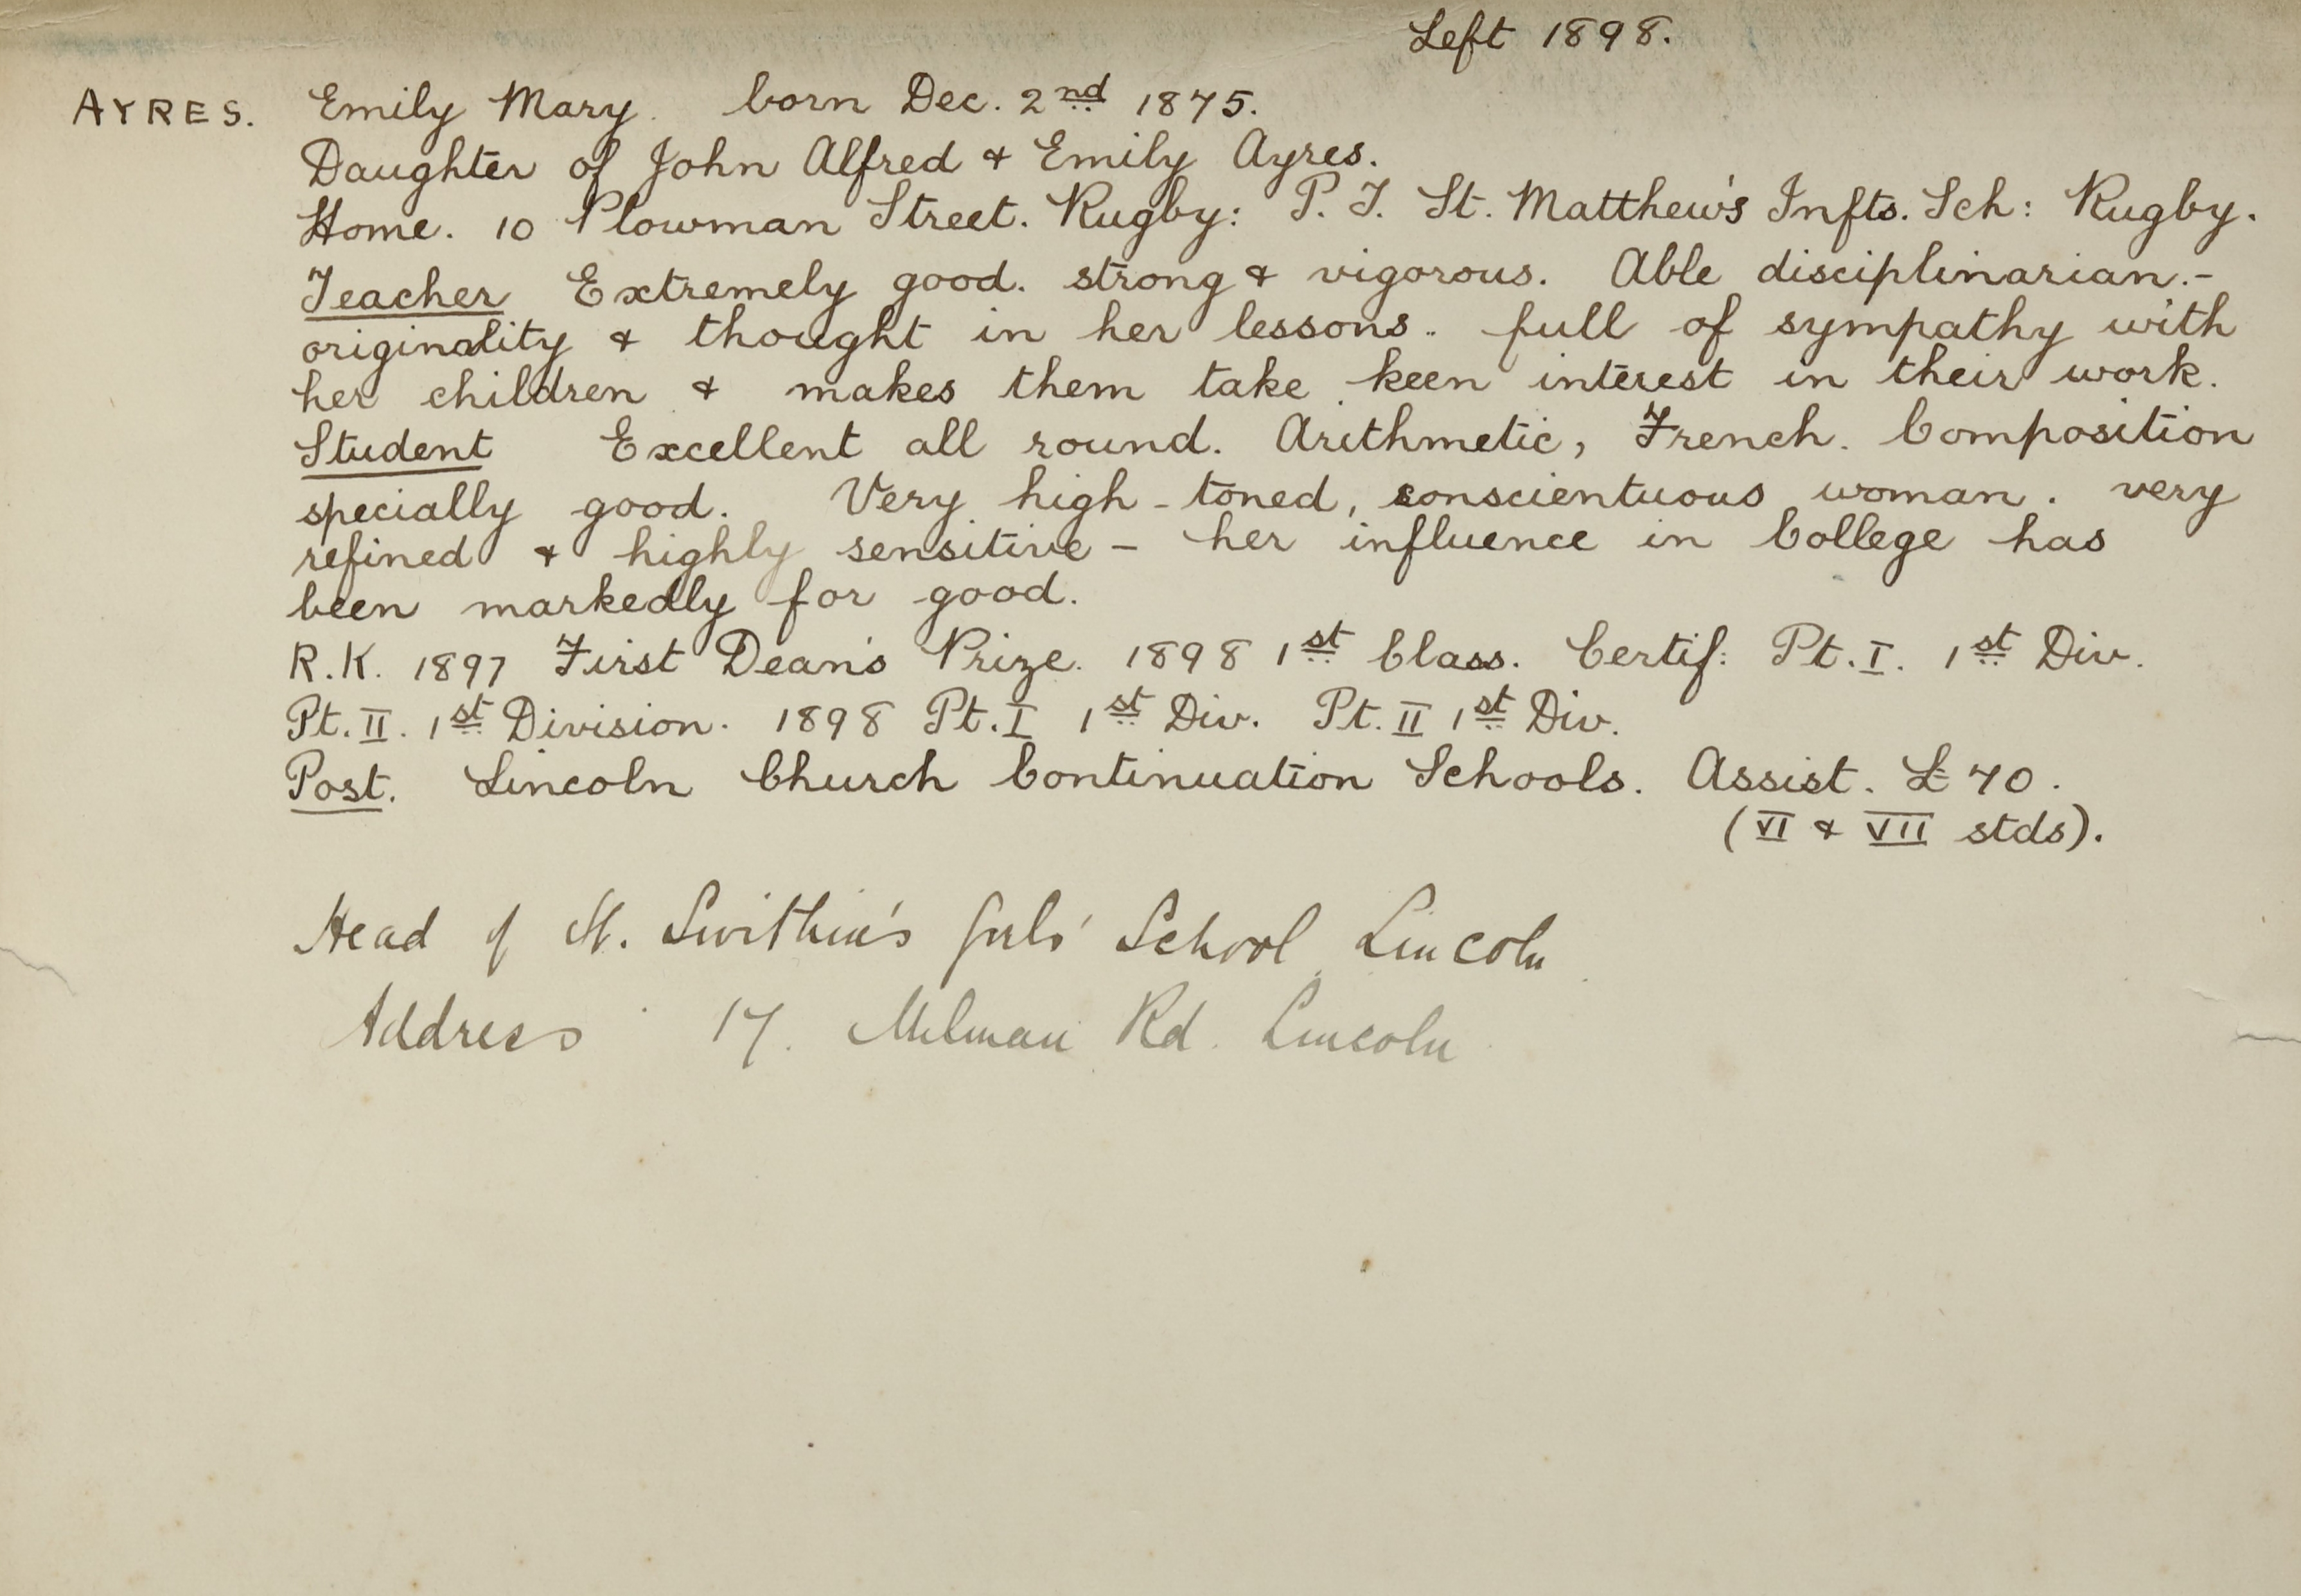 Left 1898.
AYRES. Emily Mary. born Dec. 2nd 1875.
Daughter of John Alfred & Emily Ayres.
Home. 10 Plowman Street. Rugby: P.T. St. Matthew's Infts. Sch: Rugby.
Teacher Extremely good. strong & vigorous. Able disciplinarian.-
originality & thought in her lessons.. full of sympathy with
her children & makes them take keen interest in their work.
Student Excellent all round. Arithmetic, French. Composition
specially good. Very high-toned, conscientuous woman. very
refined & highly sensitive - her influence in College has
been markedly for good.
R.K. 1897 First Dean's Prize. 1898 1st Class. Certif: Pt. I. 1st Div.
Pt. II. 1st Division. 1898 Pt. I 1st Div. Pt. II 1st Div.
Post. Lincoln Church Continuation Schools. Assist. £70.
(VI & VII stds).
Head of St. Swithin's Girls' School Lincoln
Address 17. Milman Rd. Lincoln